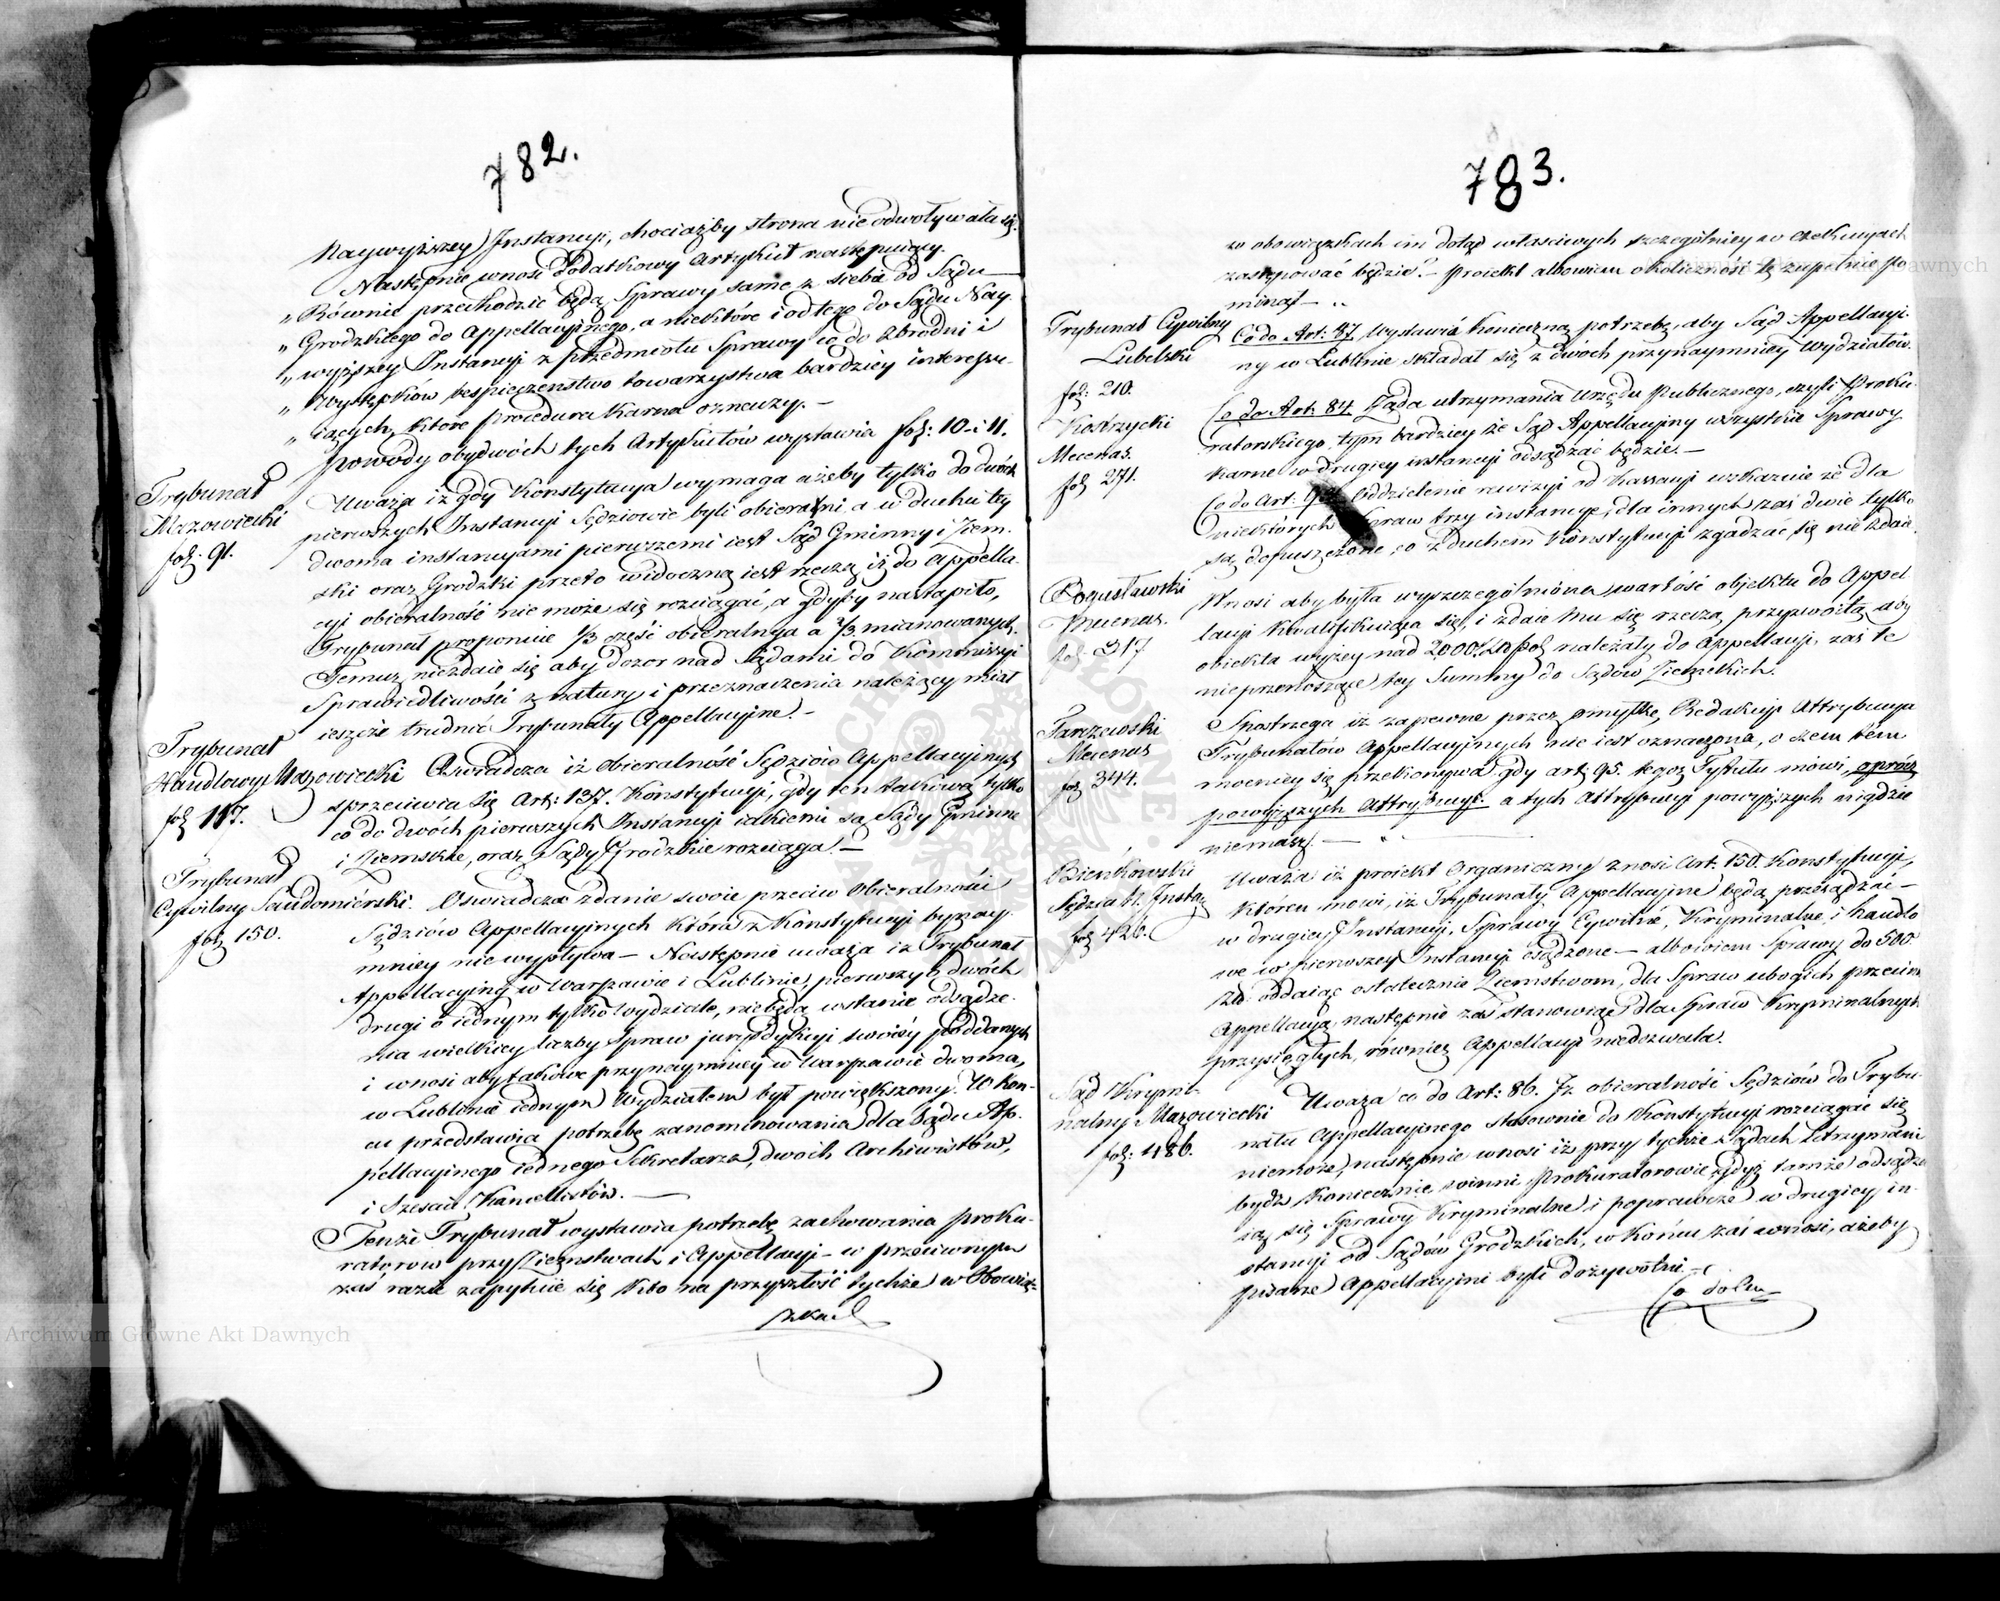 782.
Naywyższey Instancyi, chociażby strona nie odwoływała się.
Następnie wnosi dodatkowy Artykuł następujący.
„Równie przechodzić będą Sprawy same z siebie od Sądu
„Grodzkiego do Appellacyjnego, a niektóre i od tego do Sądu Nay-
„wyższey Instancyi z przedmiotu Sprawy co do Zbrodni i
„Występków bespieczeństwo towarzystwa bardziey interessu-
„iących, które procedura Karna oznaczy.—
powody obydwóch tych Artykułów wystawia fol: 10 i 11.
Trybunał
Mazowiecki
fol: 91.
Uważa iż gdy Konstytucya wymaga ażeby tylko do dwóch
pierwszych Instancyi Sędziowie byli obieralni, a w duchu tey
dwoma instancyami pierwszemi iest Sąd Gminny i Ziem-
ski oraz Grodzki przeto widoczną iest rzeczą iż do Appella-
cyi obieralność nie może się rozciągać, a gdyby nastąpiło,
Trybunał proponuie 1/3 część obieralnych a 2/3 mianowanych.
Temuż niezdaie się aby dozor nad Sądami do Kommissyi
Sprawiedliwości z natury i przeznaczenia należący miał
ieszcze trudnić Trybunały Appellacyjne.—
Trybunał
Handlowy Mazowiecki
fol 117.
Oświadcza iż obieralność Sędziów Appellacyjnych
sprzeciwia się Art: 137. Konstytucyi, gdy ten takową tylko
co do dwóch pierwszych Instancyi iakiemi są Sądy Gminne
i Ziemskie, oraz Sądy Grodzkie rozciąga.—
Trybunał
Cywilny Sandomierski.
fol 150.
Oświadcza zdanie swoie przeciw obieralności
Sędziów Appellacyjnych która z Konstytucyi bynay-
mniey nie wypływa — Następnie uważa iż Trybunał
Appellacyjny w Warszawie i Lublinie, pierwszy o dwóch
drugi o iednym tylko Wydziale, nie będą wstanie odsądze-
nia wielkiey liczby Spraw jurysdykcyi swoiey poddanych
i wnosi aby takowe przynaymniey w Warszawie dwoma,
w Lublinie iednym Wydziałem był powiększony. W Koń-
cu przedstawia potrzebę zanominowania dla Sądu Ap-
pellacyjnego iednego Sekretarza, dwóch Archiwistów,
i Sześciu Kancellistów.—
Tenże Trybunał wystawia potrzebę zachowania Proku-
ratorow przy Ziemstwach i Appellacyi — w przeciwnym
zaś razie zapytuie się kto na przyszłość tychże w Obowiąz-
zkach
783.
w obowiązkach im dotąd właściwych szczególniey w exekucyach
zastępować będzie? — Proiekt albowiem okoliczność tę zupełnie po
minął —
Trybunał Cywilny
Lubelski
fol: 210.
Co do Art: 87. Wystawia Konieczną potrzebę, aby Sąd Appellacyi-
ny w Lublinie składał się z dwóch przynaymniey Wydziałów.
Kostrzycki
Mecenas.
fol 271.
Co do Art. 84. Żąda utrzymania Urzędu Publicznego, czyli Proku-
ratorskiego, tym bardziey że Sąd Appellacyjny wszystkie Sprawy
Karne w drugiey instancyi odsądzać będzie.—
Co do Art: Oddzielenie rewizyi od Kassacyi wskazuie że dla
niektórych Spraw trzy instancye, dla innych zaś dwie tylko
są dopuszczone, co z duchem Konstytucyi zgadzać się nie zdaie.
Bogusławski
Mecenas.
fol 317
Wnosi aby była wyszczególniona wartość obiektu do Appel-
lacyi kwalifikuiąca się, i zdaie mu się rzeczą przyzwoitą, aby
obiekta wyżey nad 2000. Złł pol należały do Appellacyi, zaś te
nieprzenoszące tey Summy do Sądów Ziemskich.
Tarczewski
Mecenas
fol 344.
Spostrzega iż zapewne przez omyłkę, Redakcyi Attrybucya
Trybunałów Appellacyjnych nie iest oznaczona, o czem tem
mocniey się przekonywa gdy art. 95. tegoż Tytułu mówi, oprócz
powyższych Attrybucyi a tych Attrybucyi powyższych nigdzie
niemasz.—
Bieńkowski
Sędzia 1. Instan
fol 420.
Uważa iż proiekt Organiczny znosi Art. 150. Konstytucyi,
który mówi, iż Trybunały Appellacyjne będą przesądzać —
w drugiey Instancyi, Sprawy Cywilne, Kryminalne i handlo
we w pierwszey Instancyi osądzone — albowiem Sprawy do 500
Złł oddaiąc ostatecznie Ziemstwom, dla Spraw ubogich przecina
Appellacyą, następnie zaś stanowiąc dla Spraw Kryminalnych
przysięgłych, również Appellacyi niedozwala.
Sąd Krymi-
nalny Mazowiecki
fol: 486.
Uważa co do Art: 86. Iż obieralność Sędziów do Trybu-
nału Appellacyjnego stosownie do Konstytucyi rozciągać się
niemoże, następnie wnosi iż przy tychże Sądach Utrzymani
bydź Koniecznie winni Prokuratorowie, gdyż tamże odsądza
ią się Sprawy Kryminalne i poprawcze w drugiey in-
stancyi od Sądów Grodzkich, w Końcu zaś wnosi, ażeby
pisarze Appellacyjni byli dożywotni.—
Co do
Archiwum Główne Akt Dawnych